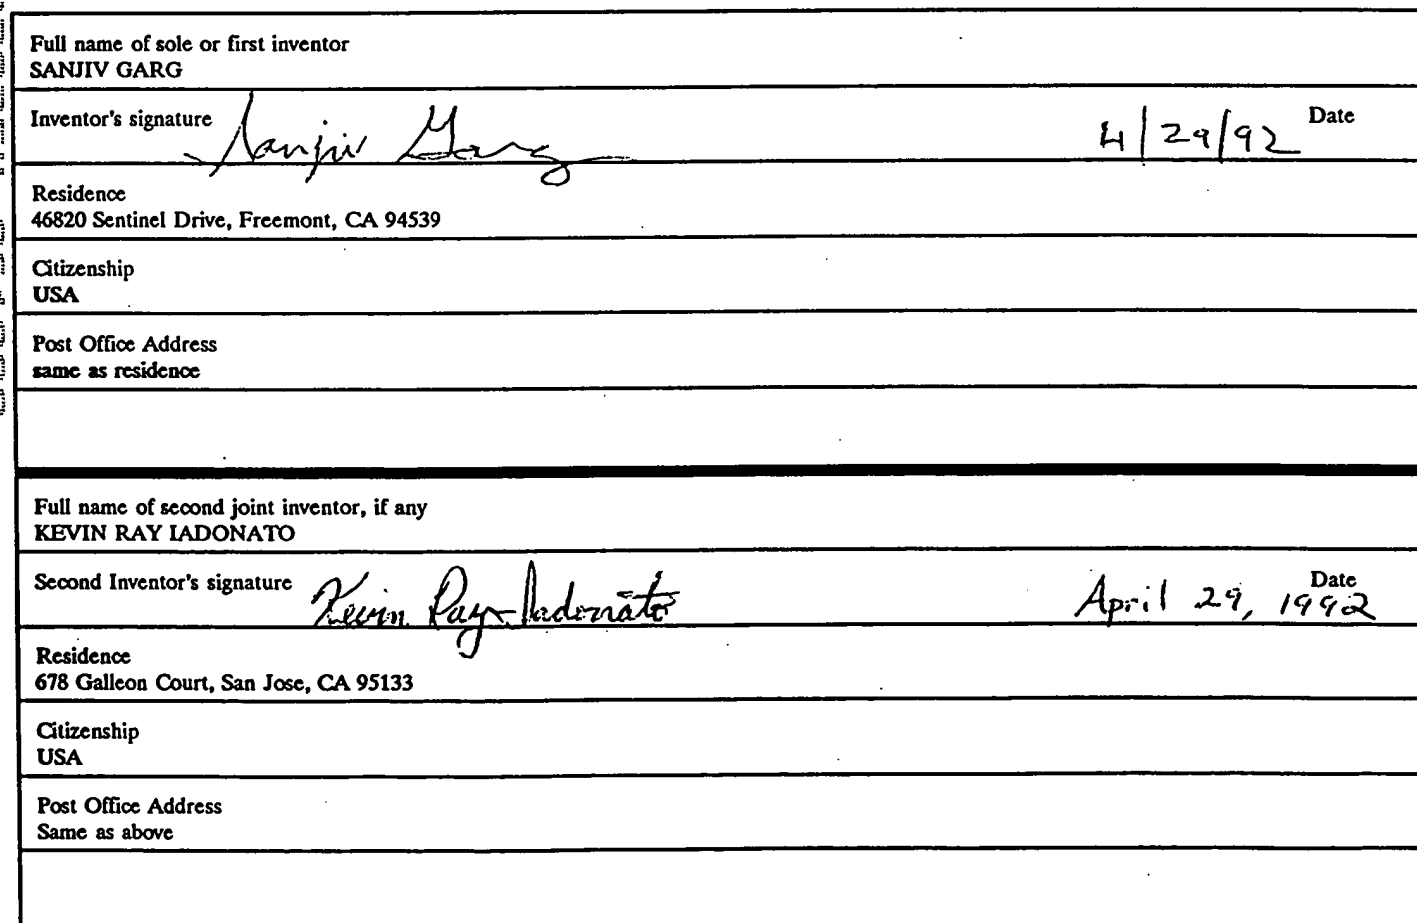 Full name of sole or first inventor
SANJIV GARG
Inventor's signature Sanjiv Garg 4/29/92 Date
Residence
46820 Sentinel Drive, Freemont, CA 94539
Citizenship
USA
Post Office Address
same as residence
Full name of second joint inventor, if any
KEVIN RAY IADONATO
Second Inventor's signature Kevin Ray Iadonato April 29, 1992 Date
Residence
678 Galleon Court, San Jose, CA 95133
Citizenship
USA
Post Office Address
Same as above